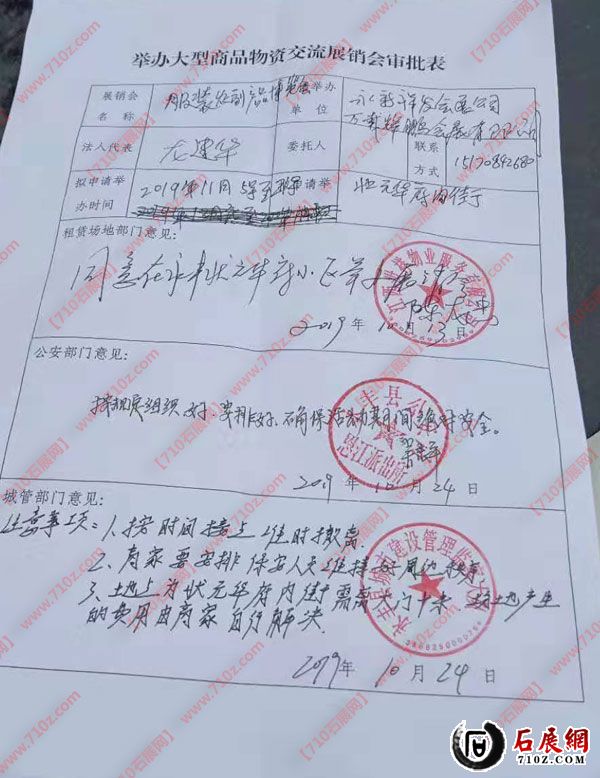 举办大型商品物资交流展销会审批表
展销会名称
服装农副产品博览会
举办单位
永新祥发会展公司
法人代表
委托人
联系方式
15170842680
拟申请举办时间
2019年11月5号
申请举
状元华府内街
租赁场地部门意见:
同意在永丰状元华府小区
2019年10月13日
公安部门意见:
按规定组织好、安排好、确保活动期间绝对安全。
永丰县公
恩江派出所
2019年10月24日
城管部门意见:
注意事项:1、按时间 准时撤离
2、商家要安排保安人员维持好周边秩序
3、土地上为状元华府内街需离大门十米 场地产生
的费用由商家自行解决.
永丰县城市建设管理监察
2019年10月24日
【710石展网】
www.710z.com
石展網
710Z.COM